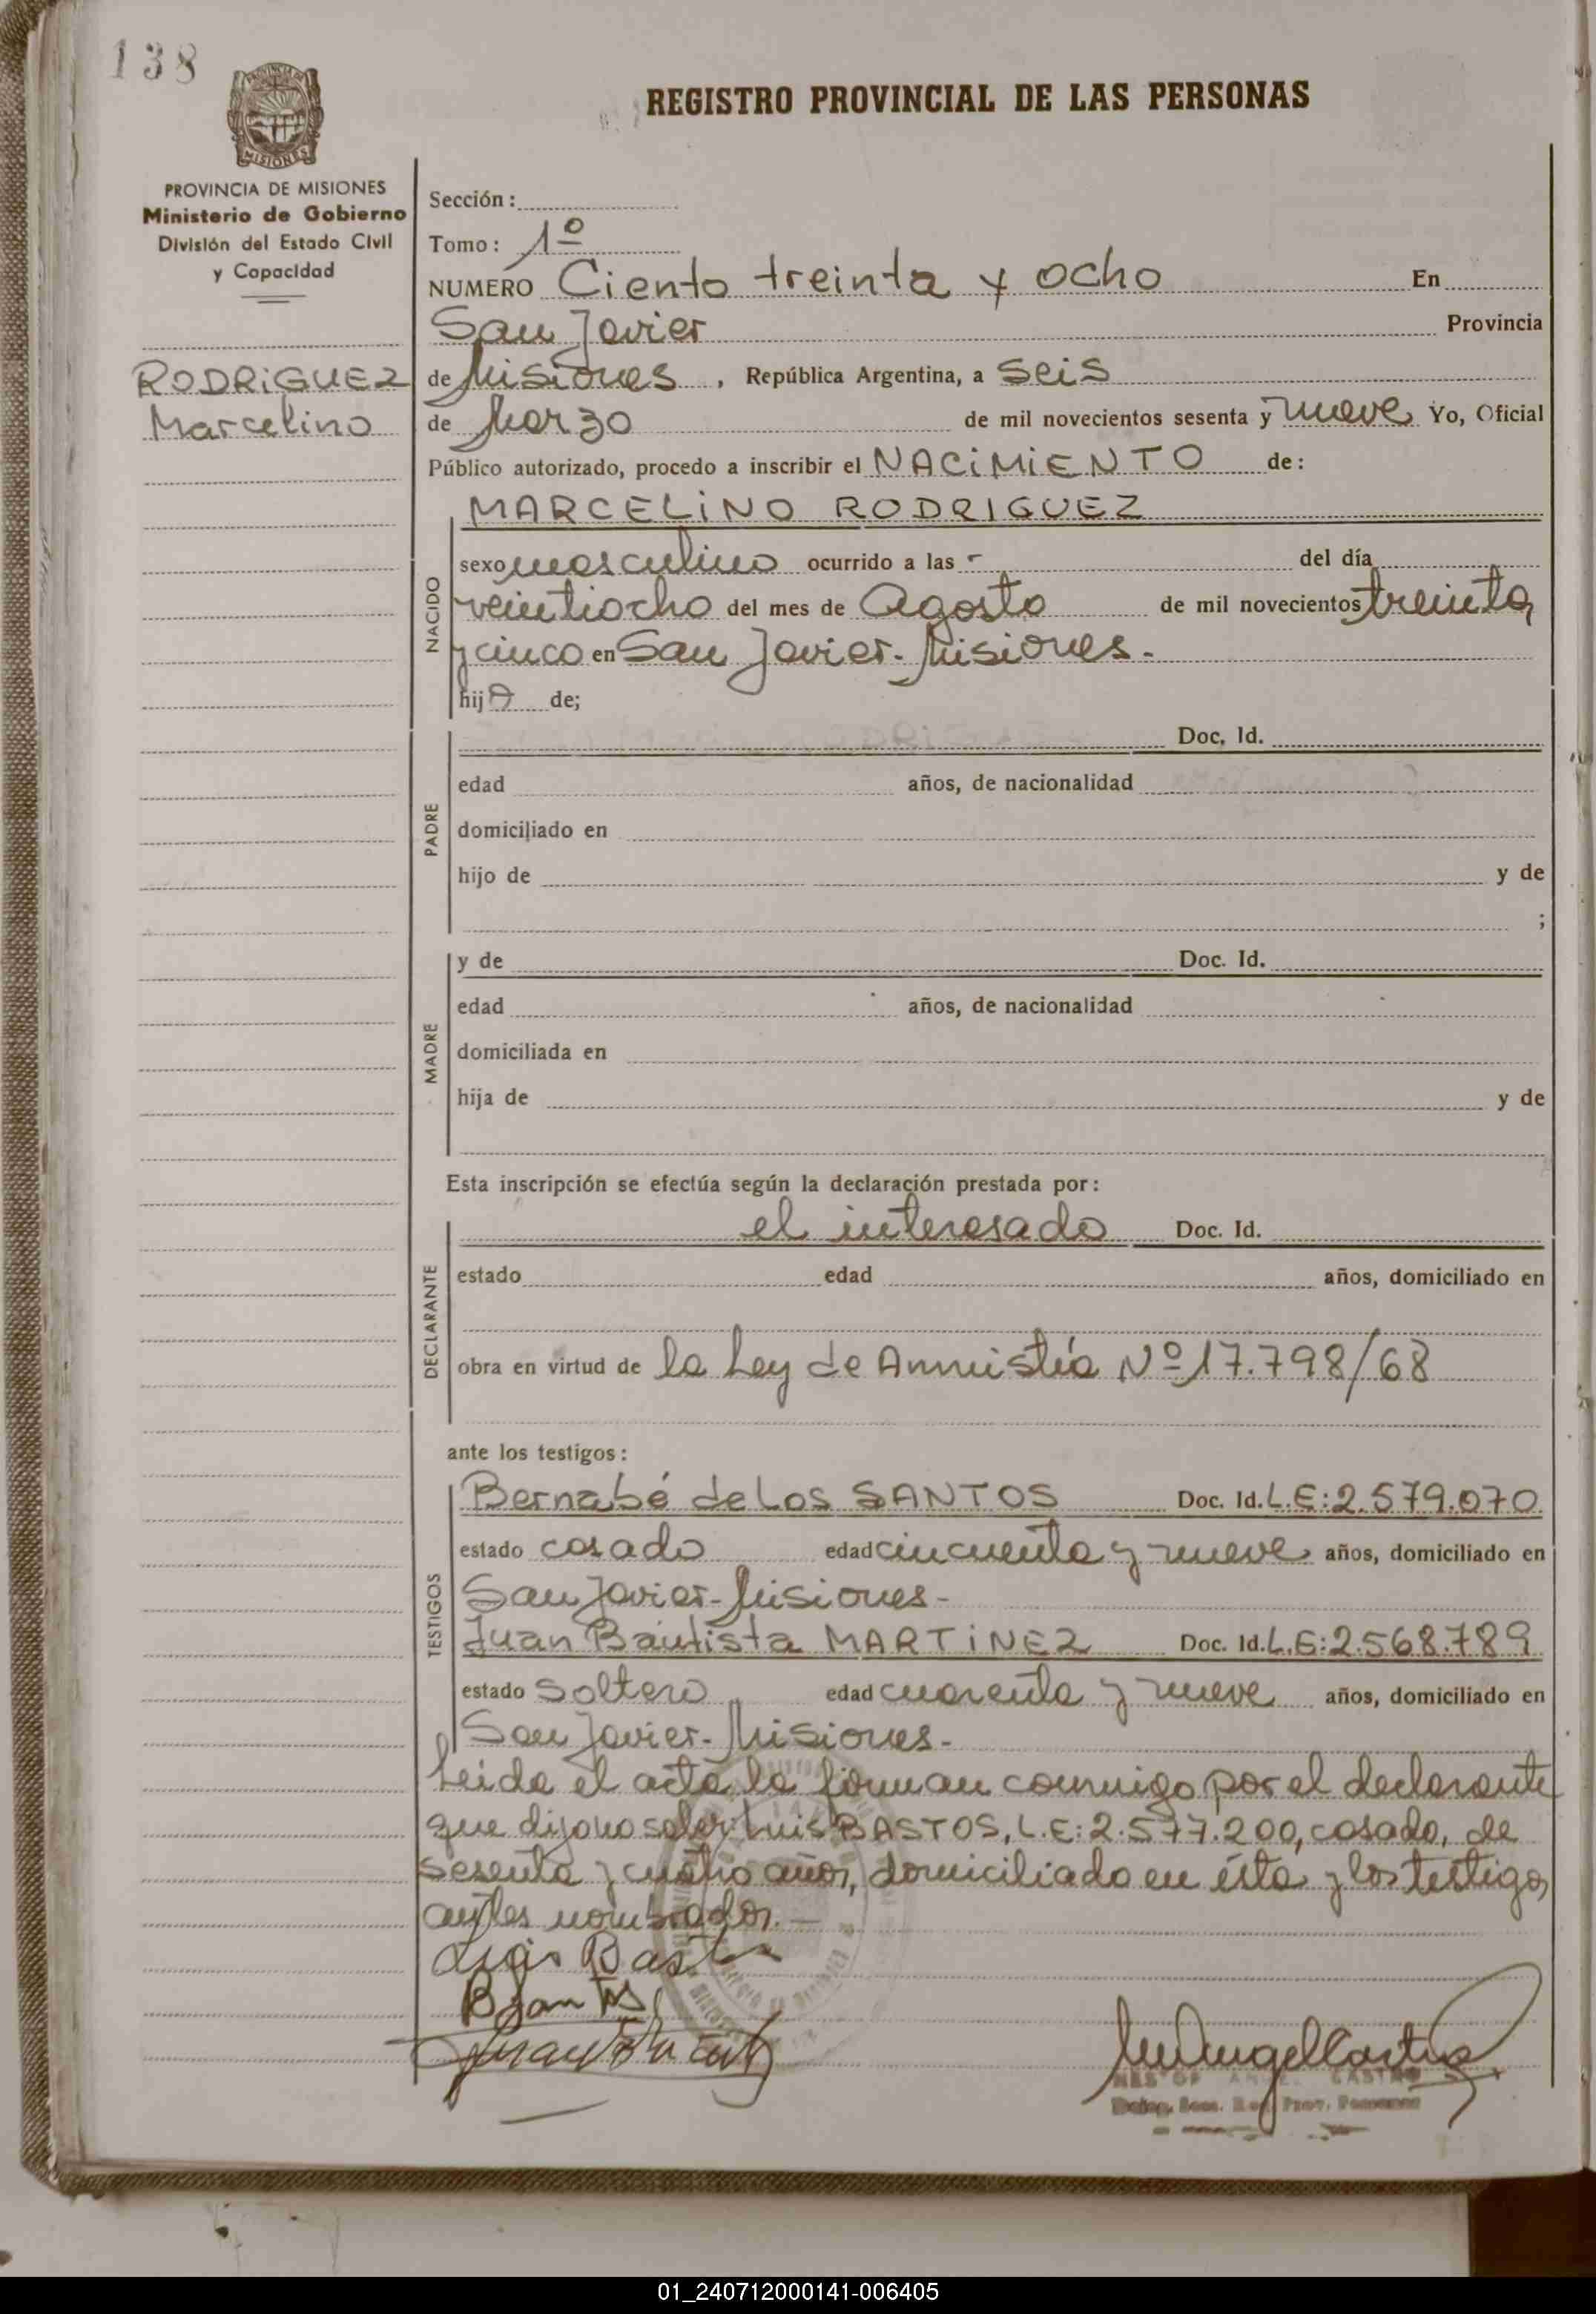 138
PROVINCIA DE
MISIONES
REGISTRO PROVINCIAL DE LAS PERSONAS
PROVINCIA DE MISIONES
Ministerio de Gobierno
División del Estado Civil
y Capacidad
RODRIGUEZ
Marcelino
Sección:
Tomo: 1º
NUMERO Ciento treinta y ocho En
San Javier Provincia
de Misiones, República Argentina, a seis
de Marzo de mil novecientos sesenta y nueve Yo, Oficial
Público autorizado, procedo a inscribir el NACIMIENTO de:
MARCELINO RODRIGUEZ
NACIDO
sexo masculino ocurrido a las - del día
veintiocho del mes de Agosto de mil novecientos treinta
y cinco en San Javier-Misiones.-
hijo de;
PADRE
Doc. Id.
edad años, de nacionalidad
domiciliado en
hijo de y de
;
MADRE
y de Doc. Id.
edad años, de nacionalidad
domiciliada en
hija de y de
Esta inscripción se efectúa según la declaración prestada por:
DECLARANTE
el interesado Doc. Id.
estado edad años, domiciliado en
obra en virtud de la Ley de Amnistía Nº 17.798/68
ante los testigos:
TESTIGOS
Bernabé de Los SANTOS Doc. Id. L.E:2.579.070
estado casado edad cincuenta y nueve años, domiciliado en
San Javier-Misiones-
Juan Bautista MARTINEZ Doc. Id. L.E:2.568.789
estado soltero edad cuarenta y nueve años, domiciliado en
San Javier-Misiones-
Leida el acta la firman conmigo por el declarante
que dijo no saber Luis BASTOS, L.E:2.577.200, casado, de
sesenta y cuatro años, domiciliado en ésta y los testigos
antes nombrados.-
Luis Bastos
CASTRO
01_240712000141-006405